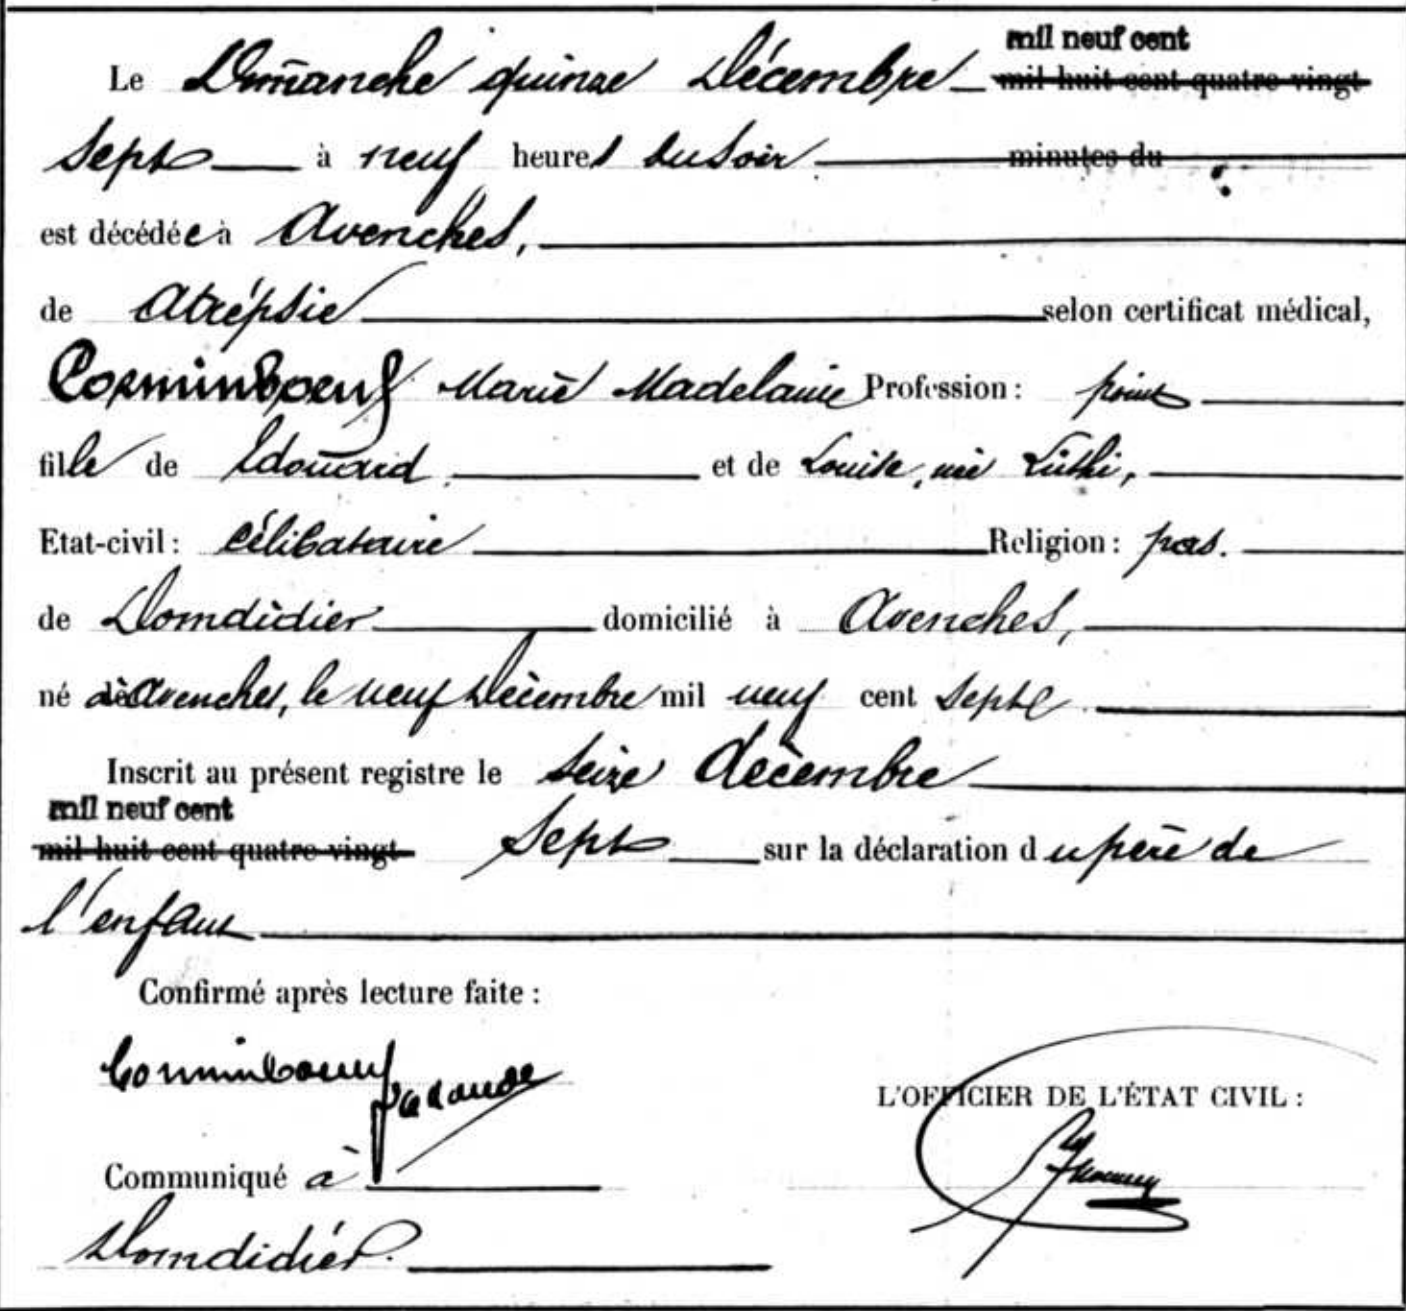 mil neuf cent
Le Dimanche quinze Décembre mil huit cent quatre-vingt
Sept à neuf heures du Soir minutes du
est décédée à Avenches,
de Atrépsie selon certificat médical,
Corminboeuf Marie Madelaine Profession : point
fille de Edouard et de Louise, née Lüthi,
Etat-civil : Célibataire Religion :
de Domdidier domicilié à Avenches,
né à Avenches, le neuf Décembre mil neuf cent Sept
Inscrit au présent registre le Seize décembre
mil neuf cent
mil huit cent quatre-vingt Sept sur la déclaration du père de
l'enfant
Confirmé après lecture faite :
Corminboeuf
L'OFFICIER DE L'ÉTAT CIVIL :
Communiqué à
Domdidier.